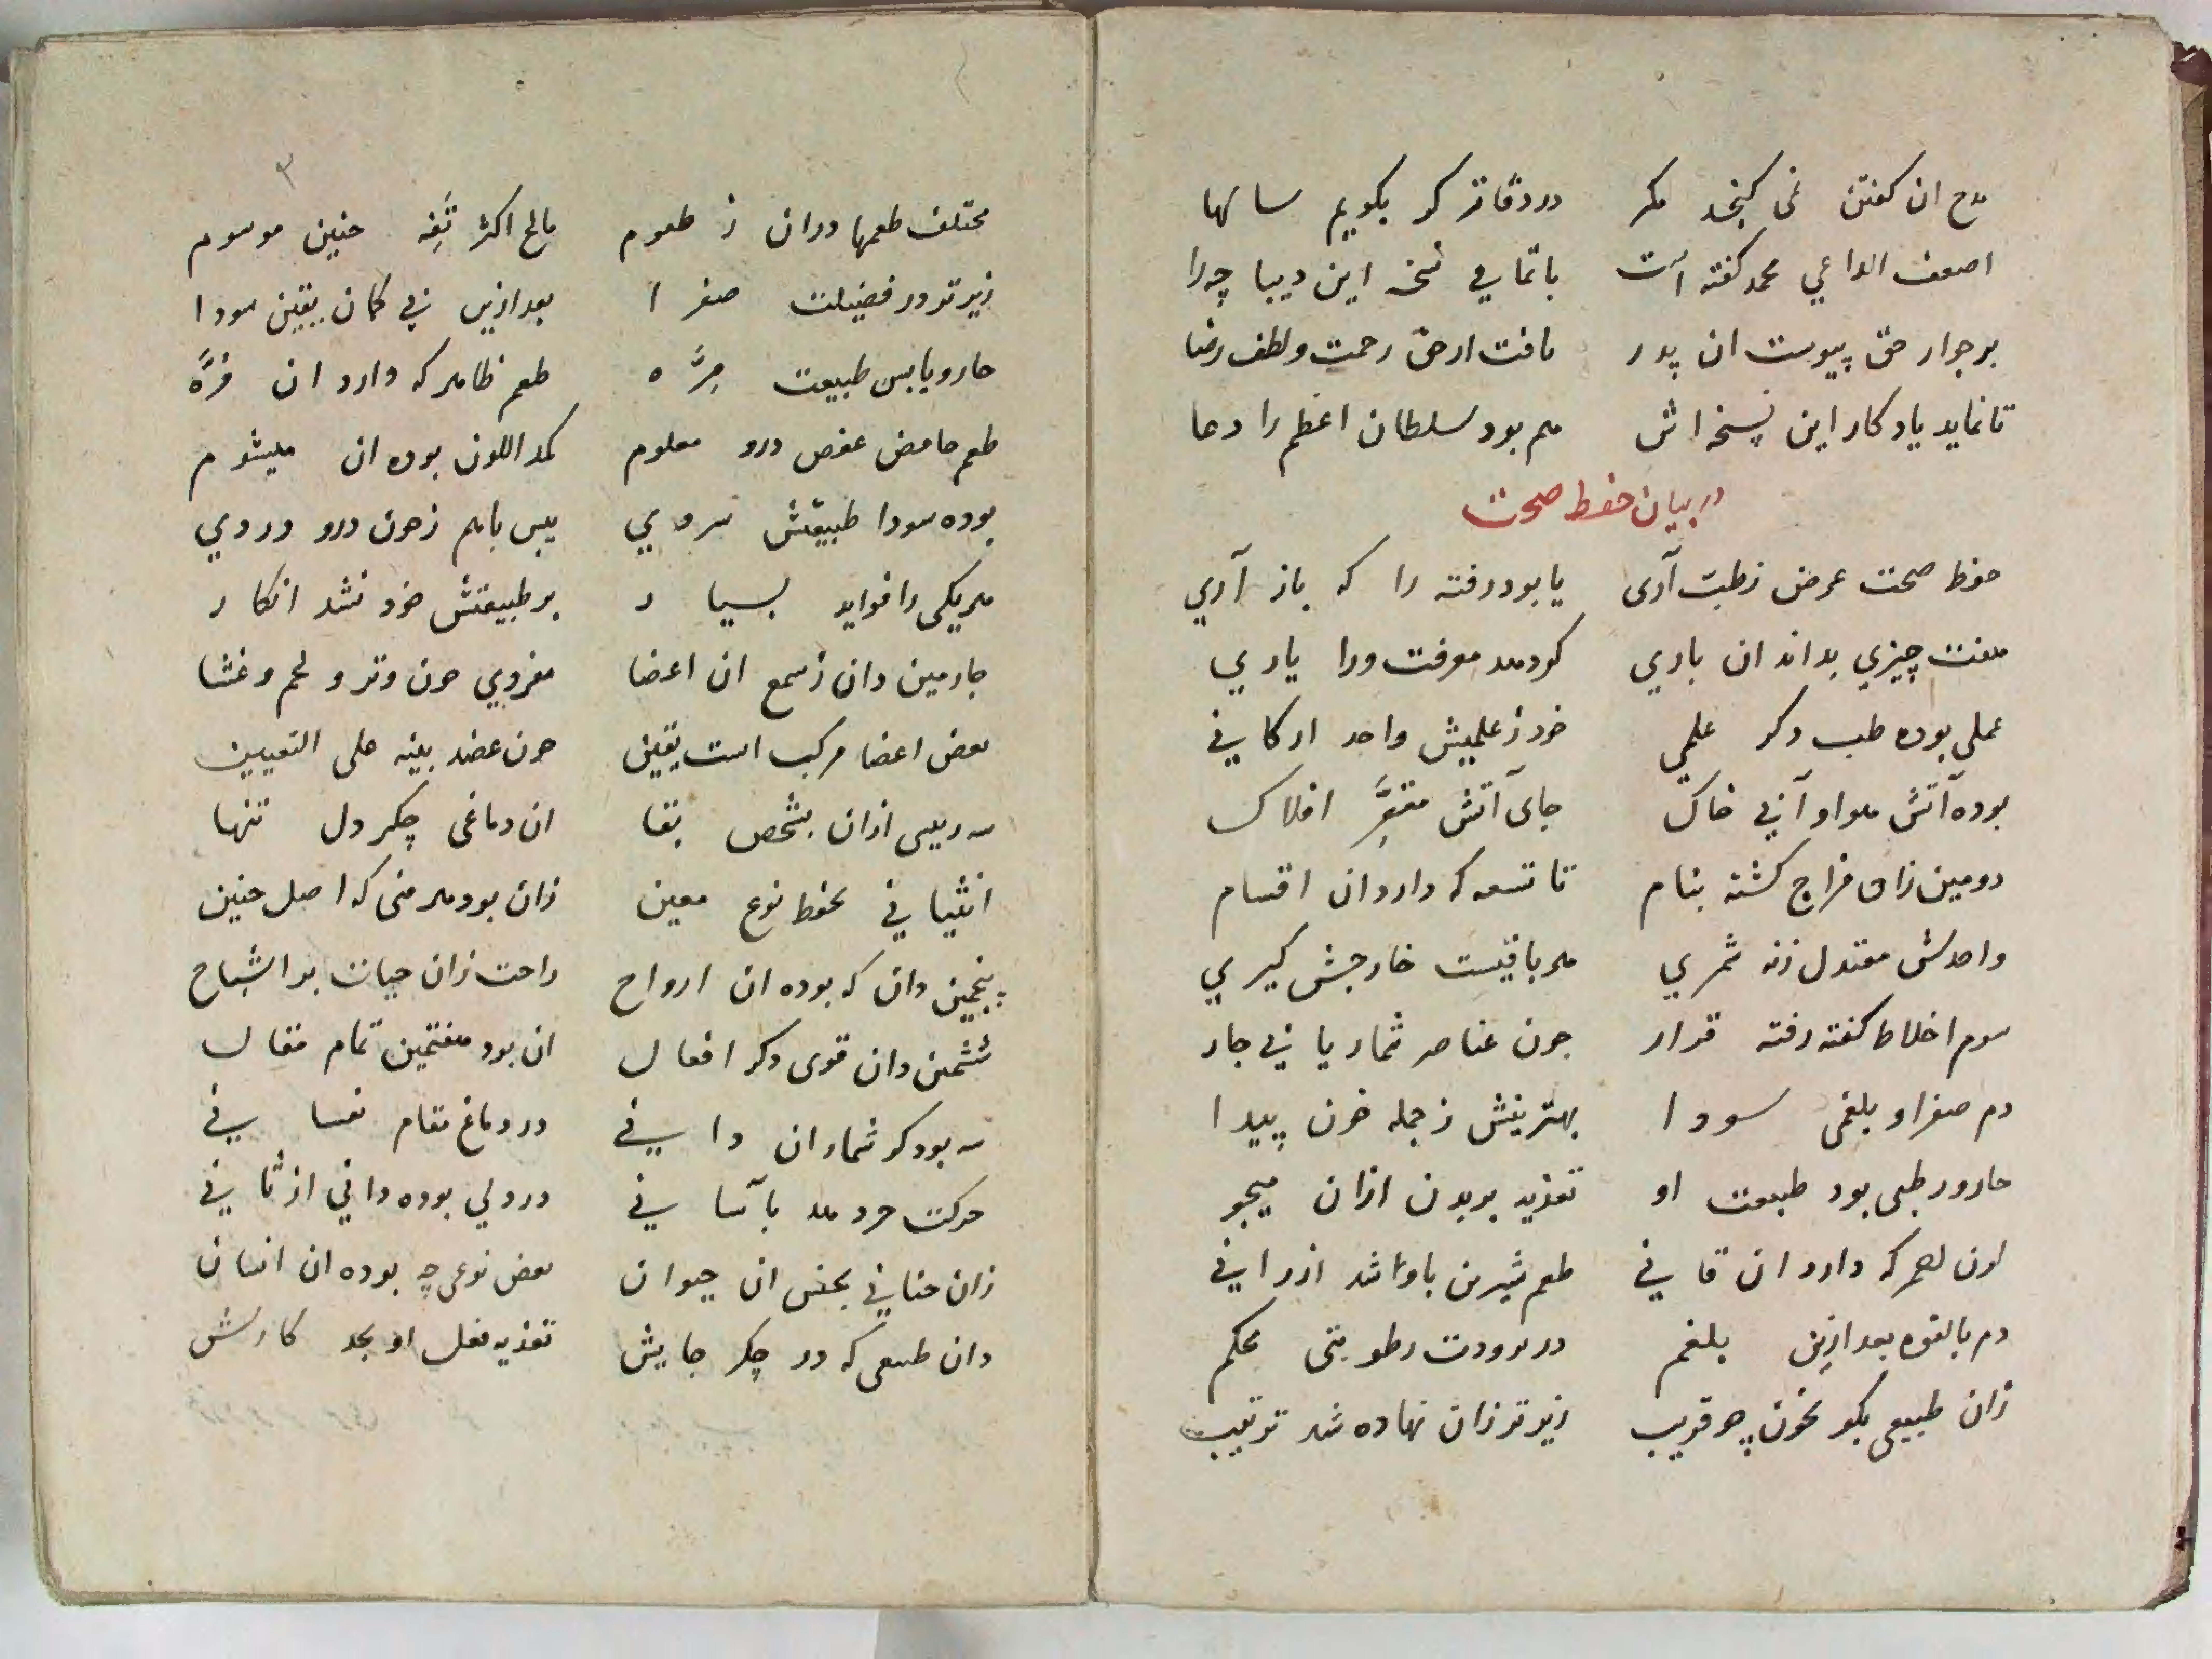 مدح ان كفتن نمى كنجد مكر دردفاتر كر بكويم سالها
اضعف الداعي محمد كفته است باتمامي نسخه اين ديباچه را
بر جوار حق پيوست ان پدر يافت ازحق رحمت ولطف رضا
تا نمايد يادكار اين نسخه اش هم بود سلطان اعظم را دعا
در بيان حفظ صحت
حفظ صحت عرض زطبت آرى يا بود رفته را كه باز آري
هفت چيزي بداند ان باري كرد هد معرفت ورا ياري
عملي بوده طب دكر علمي خود ز علميش واحد اركاني
بوده آتش هوا و آبي خاك جاى آتش مقعر افلاك
دومين زان مزاج كشته بنام تا تسعه كه دارد ان اقسام
واحدش معتدل زنه شمري هر باقيست خارجش كيري
سوم اخلاط كفته رفته قرار چون عناصر شمار يابي چار
دم صفرا و بلغمى سودا بهترينش ز جمله خون پيدا
حار ورطبى بود طبيعت او تغذيه بر بدن ازان ميجو
لون احمر كه دارد ان قاني طعم شيرين باوباشد ازرانى
دم بالقوه بعد ازين بلغم در برودت رطوبتى محكم
زان طبيعى بكو بخون چو قريب زيرتر زان نهاده شد ترتيب
٣
مختلف طعمها دران ز طعوم مالح اكثر تفه چنين موسوم
زيرتر در فضيلت صفرا بعد ازين بي كمان يقين سودا
حار ويابس طبيعت مره طعم ظاهر كه دارد ان مره
طعم حامض عفص درو معلوم كمد اللون بوده ان ميشوم
بوده سودا طبيعتش سردي يبس باهم زخون درو دردي
هريكى را فوايد بسيار بر طبيعتش خود نشد انكار
چارمين دان ز سمع ان اعضا مفردي چون وتر و لحم و غشا
بعض اعضا مركب است يقين چون عضد بينه على التعيين
سه رييسى ازان بشخص بقا ان دماغى جكر دل تنها
انثياني بحفظ نوع معين زان بود هر منى كه اصل جنين
پنجمين دان كه بوده ان ارواح راحت زان حيات بر اشباح
ششمين دان قوى دكر افعال ان بود هفتمين تمام مقال
سه بود كر شمار ان دانى در دماغ مقام نفسانى
حركت حرد هد باسانى در دلي بوده داني از ثاني
زان حياتي بجنس ان حيوان بعض نوعى چه بوده ان انسان
دان طبيعى كه در جكر جايش تغذيه فعل او بجد كارش